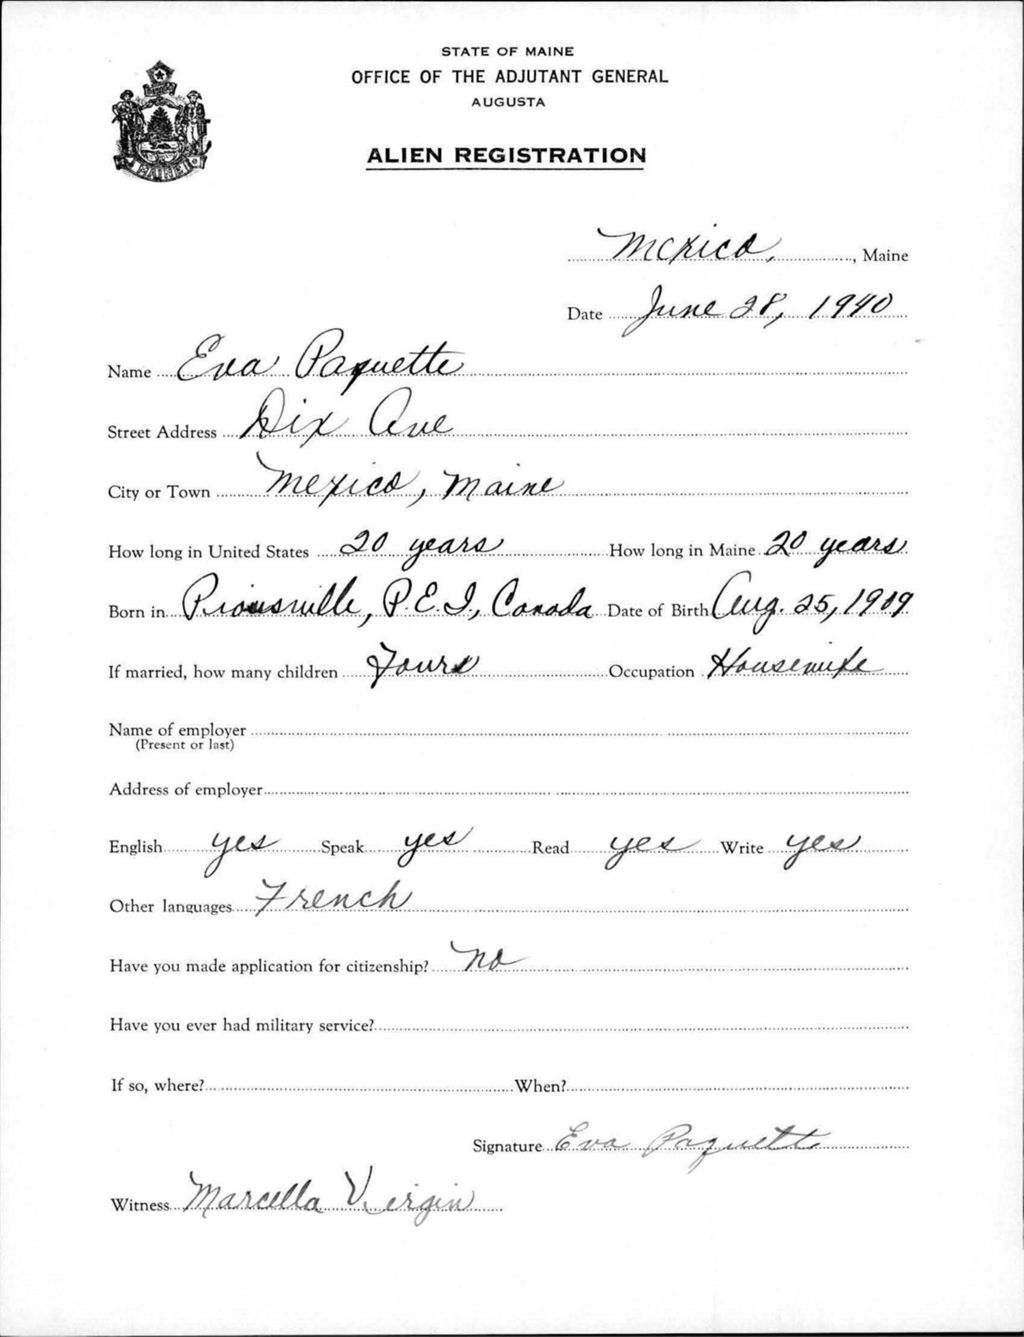 STATE OF MAINE
OFFICE OF THE ADJUTANT GENERAL
AUGUSTA
ALIEN REGISTRATION
Mexico, Maine
Date June 28, 1940
Name Eva Paquette
Street Address Dix Ave
City or Town Mexico, Maine
How long in United States 20 years How long in Maine 20 years
Born in P.E.I., Canada Date of Birth Aug. 25, 1909
If married, how many children Four Occupation Housewife
Name of employer
(Present or last)
Address of employer
English yes Speak yes Read yes Write yes
Other languages French
Have you made application for citizenship? No
Have you ever had military service?
If so, where? When?
Signature Eva Paquette
Witness Marcella Virgin
MAINE